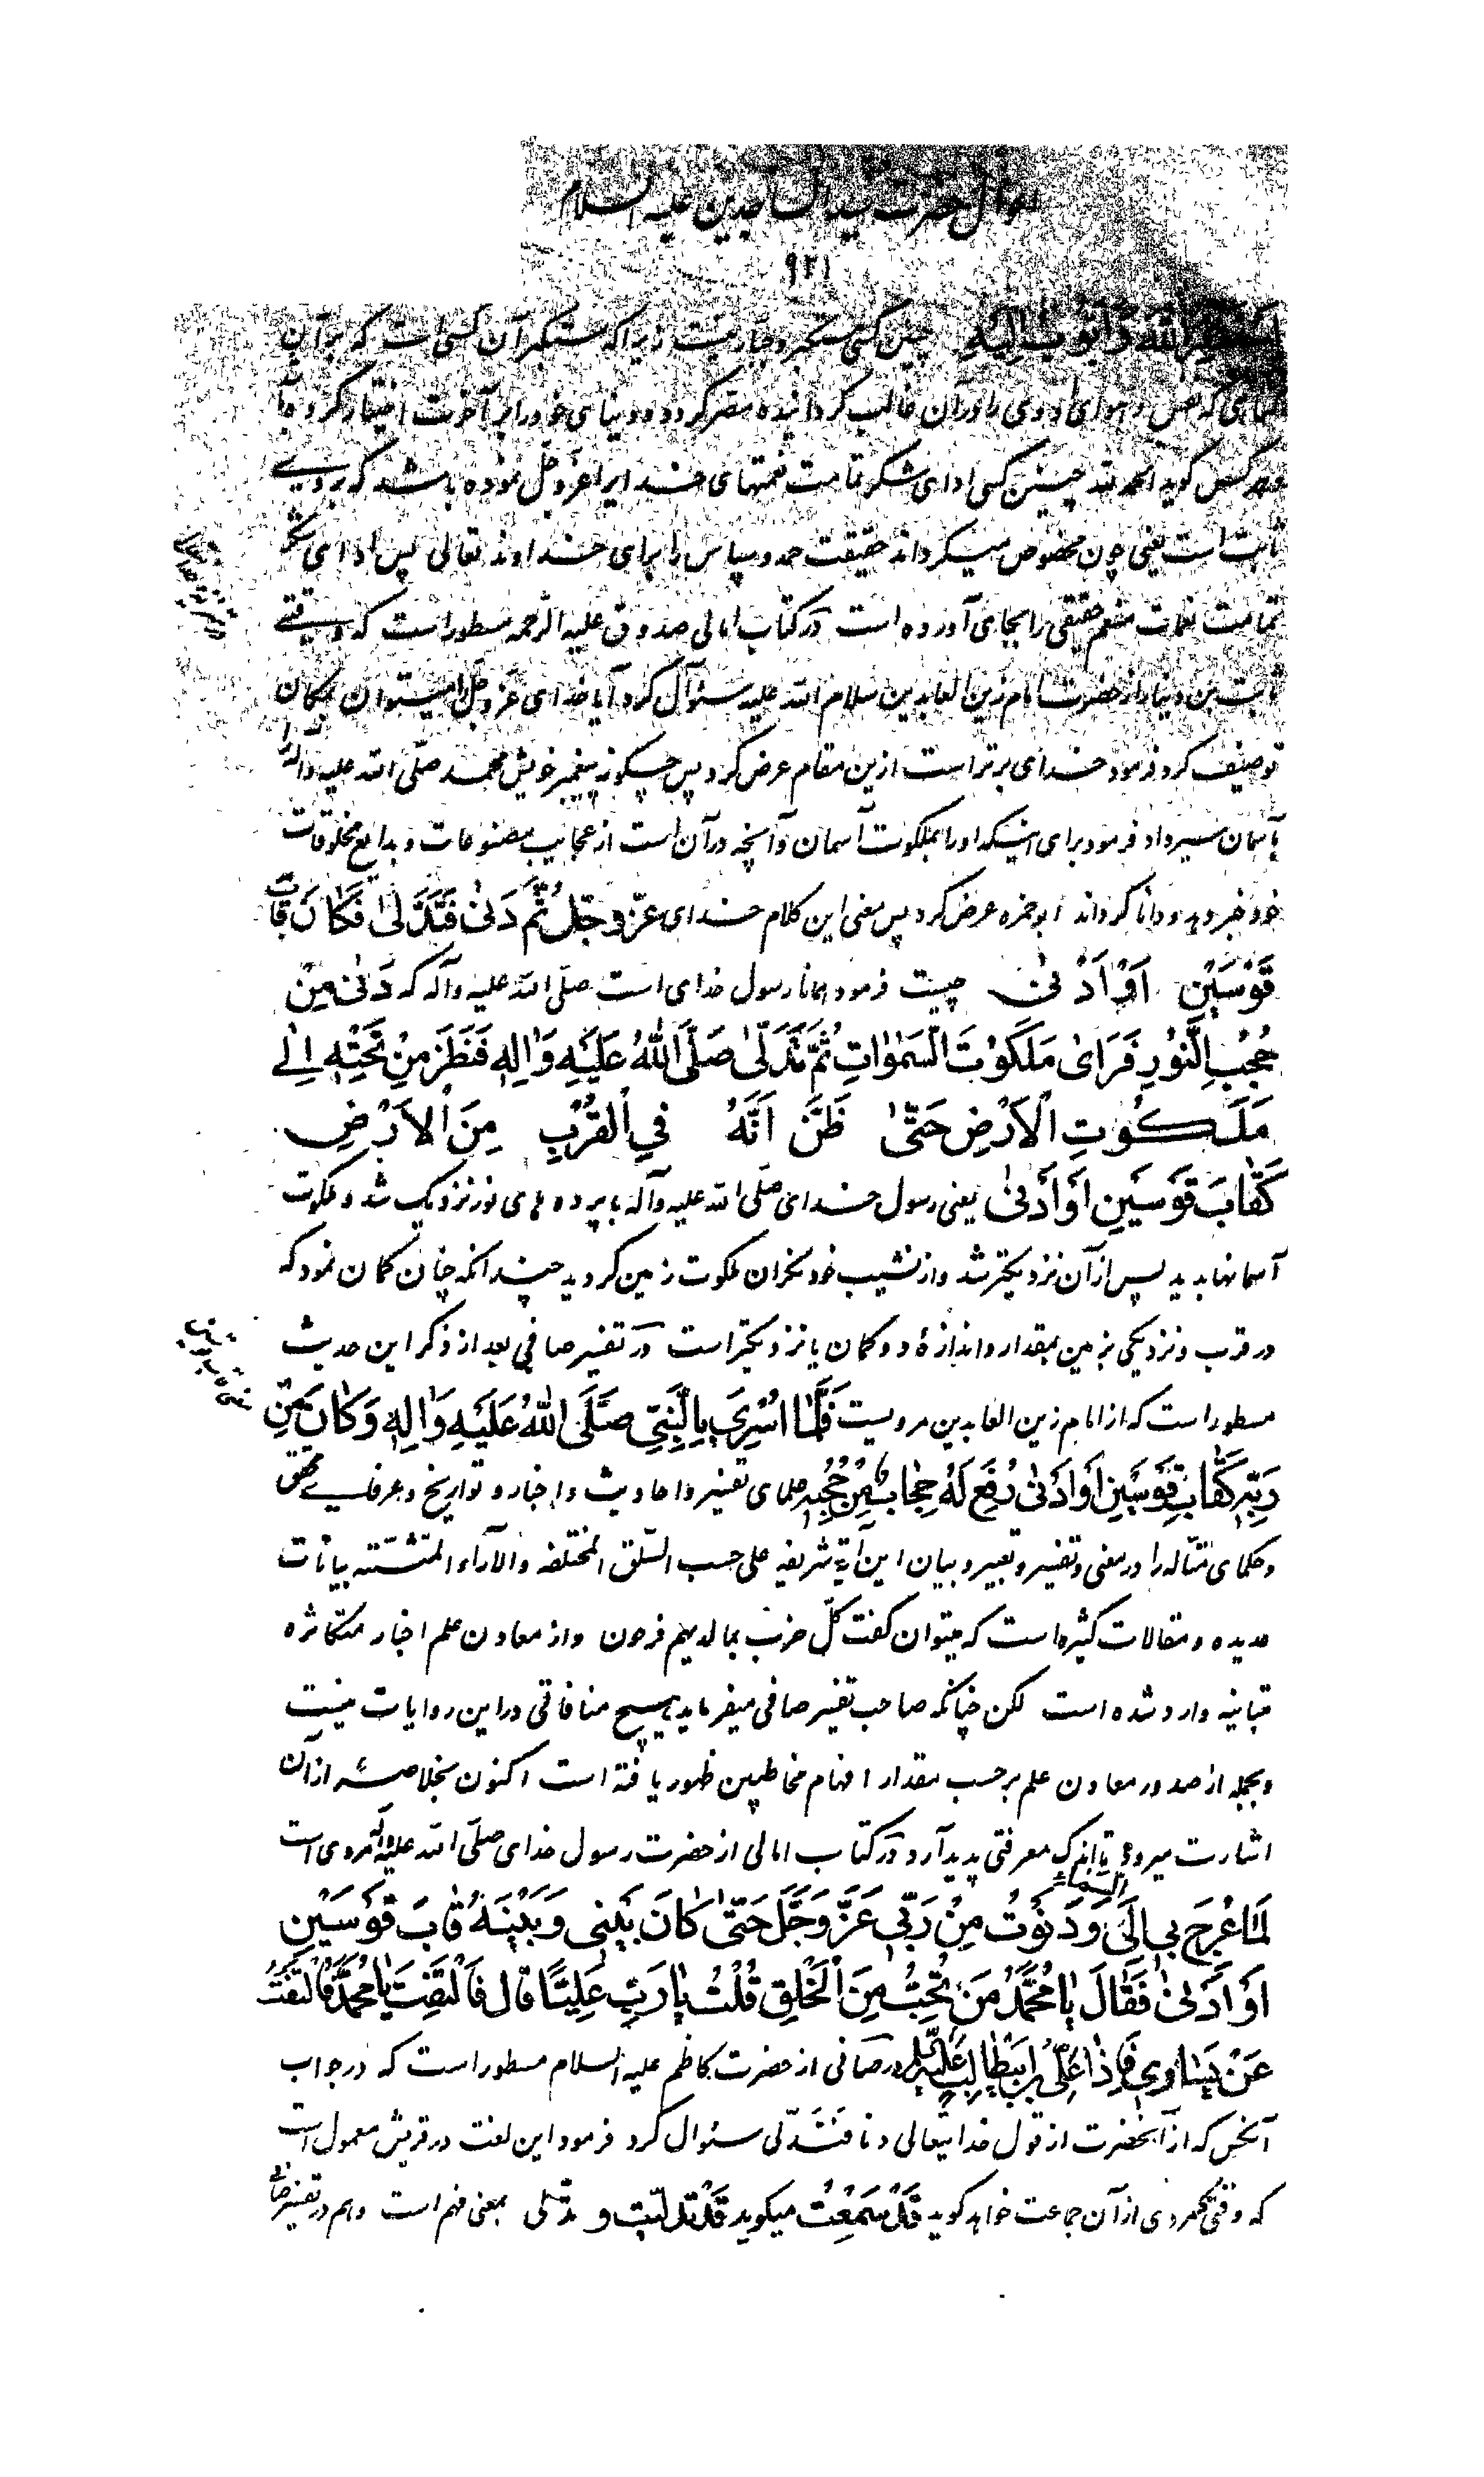 احوال حضرت سید الساجدین علیه السلام
۹۲۱
اَسْتَغْفِرُ اللهَ وَ اَتُوبُ اِلَیْهِ چنین کسی متکبر و جبار نیست زیرا که متکبر آن کسی است که بر آن
را در آن غالب گردانیده مصر گردد و دنیای خود را بر آخرت اختیار کرده باشد
و هر کس گوید الحمد لله چنین کسی ادای شکر تمامت نعمتهای خدایرا عزوجل نموده باشد که بر وی
ثابت است یعنی چون مخصوص میگرداند حقیقت حمد و سپاس را برای خداوند تعالی پس ادای شکر
تمامت نعمات منعم حقیقی را بجای آورده است در کتاب امالی صدوق علیه الرحمه مسطور است که وقتی
ثابت بن دینار از حضرت امام زین العابدین سلام الله علیه سئوال کرد آیا خدای عزوجل را میتوان بمکان
توصیف کرد فرمود خدای برتر است ازین مقام عرض کرد پس چگونه پیغمبر خویش محمد صلّی الله علیه وآله را
بآسمان سیر داد فرمود برای اینکه او را بملکوت آسمان و آنچه در آن است از عجایب مصنوعات و بدایع مخلوقات
خود خبر دهد و دانا گرداند ابو حمزه عرض کرد پس معنی این کلام خدای عزّ و جلّ ثُمَّ دَنیٰ فَتَدَلّیٰ فَکانَ قابَ
قَوْسَیْنِ اَوْ اَدْنیٰ چیست فرمود همانا رسول خدای است صلّی الله علیه وآله که دَنیٰ مِنْ
حُجُبِ النُّورِ فَرَایٰ مَلَکُوتَ السَّمٰوٰاتِ ثُمَّ تَدَلّیٰ صَلَّی اللهُ عَلَیْهِ وَاٰلِهِ فَنَظَرَ مِنْ تَحْتِهِ اِلیٰ
مَلَکُوتِ الْاَرْضِ حَتّیٰ ظَنَّ اَنَّهُ فِی الْقُرْبِ مِنَ الْاَرْضِ
کَقابَ قَوْسَیْنِ اَوْ اَدْنیٰ یعنی رسول خدای صلّی الله علیه وآله با پرده های نور نزدیک شد و ملکوت
آسمانها بدید پس از آن نزدیکتر شد و از نشیب خود نگران ملکوت زمین گردید چندانکه چنان گمان نمود که
در قرب و نزدیکی بزمین بمقدار و اندازهٔ دو کمان یا نزدیکتر است در تفسیر صافی بعد از ذکر این حدیث
مسطور است که از امام زین العابدین مرویست فَلَمّا اُسْرِیَ بِالنَّبِیِّ صَلَّی اللهُ عَلَیْهِ وَاٰلِهِ وَکانَ مِنْ
رَبِّهِ کَقابَ قَوْسَیْنِ اَوْ اَدْنیٰ رُفِعَ لَهُ حِجابٌ مِنْ حُجُبِهِ علمای تفسیر و احادیث و اخبار و تواریخ و عرفای محقق
و حکمای متأله را در معنی و تفسیر و تعبیر و بیان این آیهٔ شریفه علی حسب السلق المختلفه والآراء المتشتته بیانات
عدیده و مقالات کثیره است که میتوان گفت کلّ حزب بما لدیهم فرحون و از معادن علم اخبار متکاثره
متباینه وارد شده است لکن چنانکه صاحب تفسیر صافی میفرماید هیچ منافاتی در این روایات نیست
و بجمله از صدور معادن علم بر حسب مقدار افهام مخاطبین ظهور یافته است اکنون بخلاصهٔ از آن
اشارت میرود تا اندک معرفتی پدید آرد در کتاب امالی از حضرت رسول خدای صلّی الله علیه وآله مروی است
لَمّا عُرِجَ بِی اِلَی السَّماءِ وَ دَنَوْتُ مِنْ رَبّی عَزَّ وَجَلَّ حَتّیٰ کانَ بَیْنی وَ بَیْنَهُ قابَ قَوْسَیْنِ
اَوْ اَدْنیٰ فَقالَ یا مُحَمَّدُ مَنْ تُحِبُّ مِنَ الْخَلْقِ قُلْتُ یا رَبِّ عَلِیًّا قالَ فَالْتَفِتْ یا مُحَمَّدُ فَالْتَفَتُّ
عَنْ یَساری فَاِذا عَلِیُّ بْنُ اَبیطالِبٍ عَلَیْهِ در صافی از حضرت کاظم علیه السلام مسطور است که در جواب
آنکس که از آنحضرت از قول خدایتعالی دنا فَتَدَلّی سئوال کرد فرمود این لغت در قریش معمول است
که وقتی مردی از آن جماعت خواهد گوید قَدْ سَمِعْتُ میگوید قَدْ تَدَلَّیْتُ و تدلی بمعنی فهم است و هم در تفسیر صافی